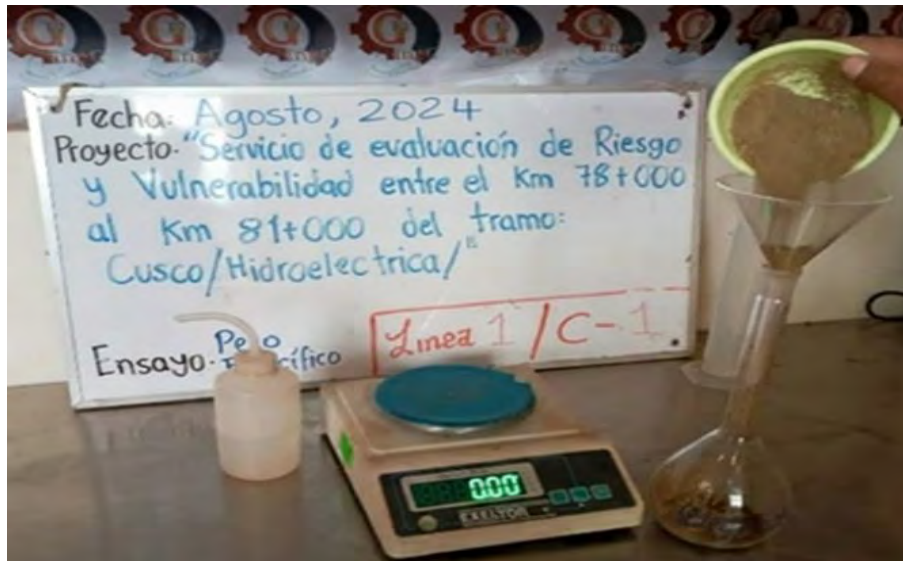 Fecha: Agosto, 2024
Proyecto: "Servicio de evaluación de Riesgo
y Vulnerabilidad entre el Km 78+000
al Km 81+000 del tramo:
Cusco/Hidroelectrica/"
Ensayo:
Línea 1 / C-1
0.00
EXELTOR